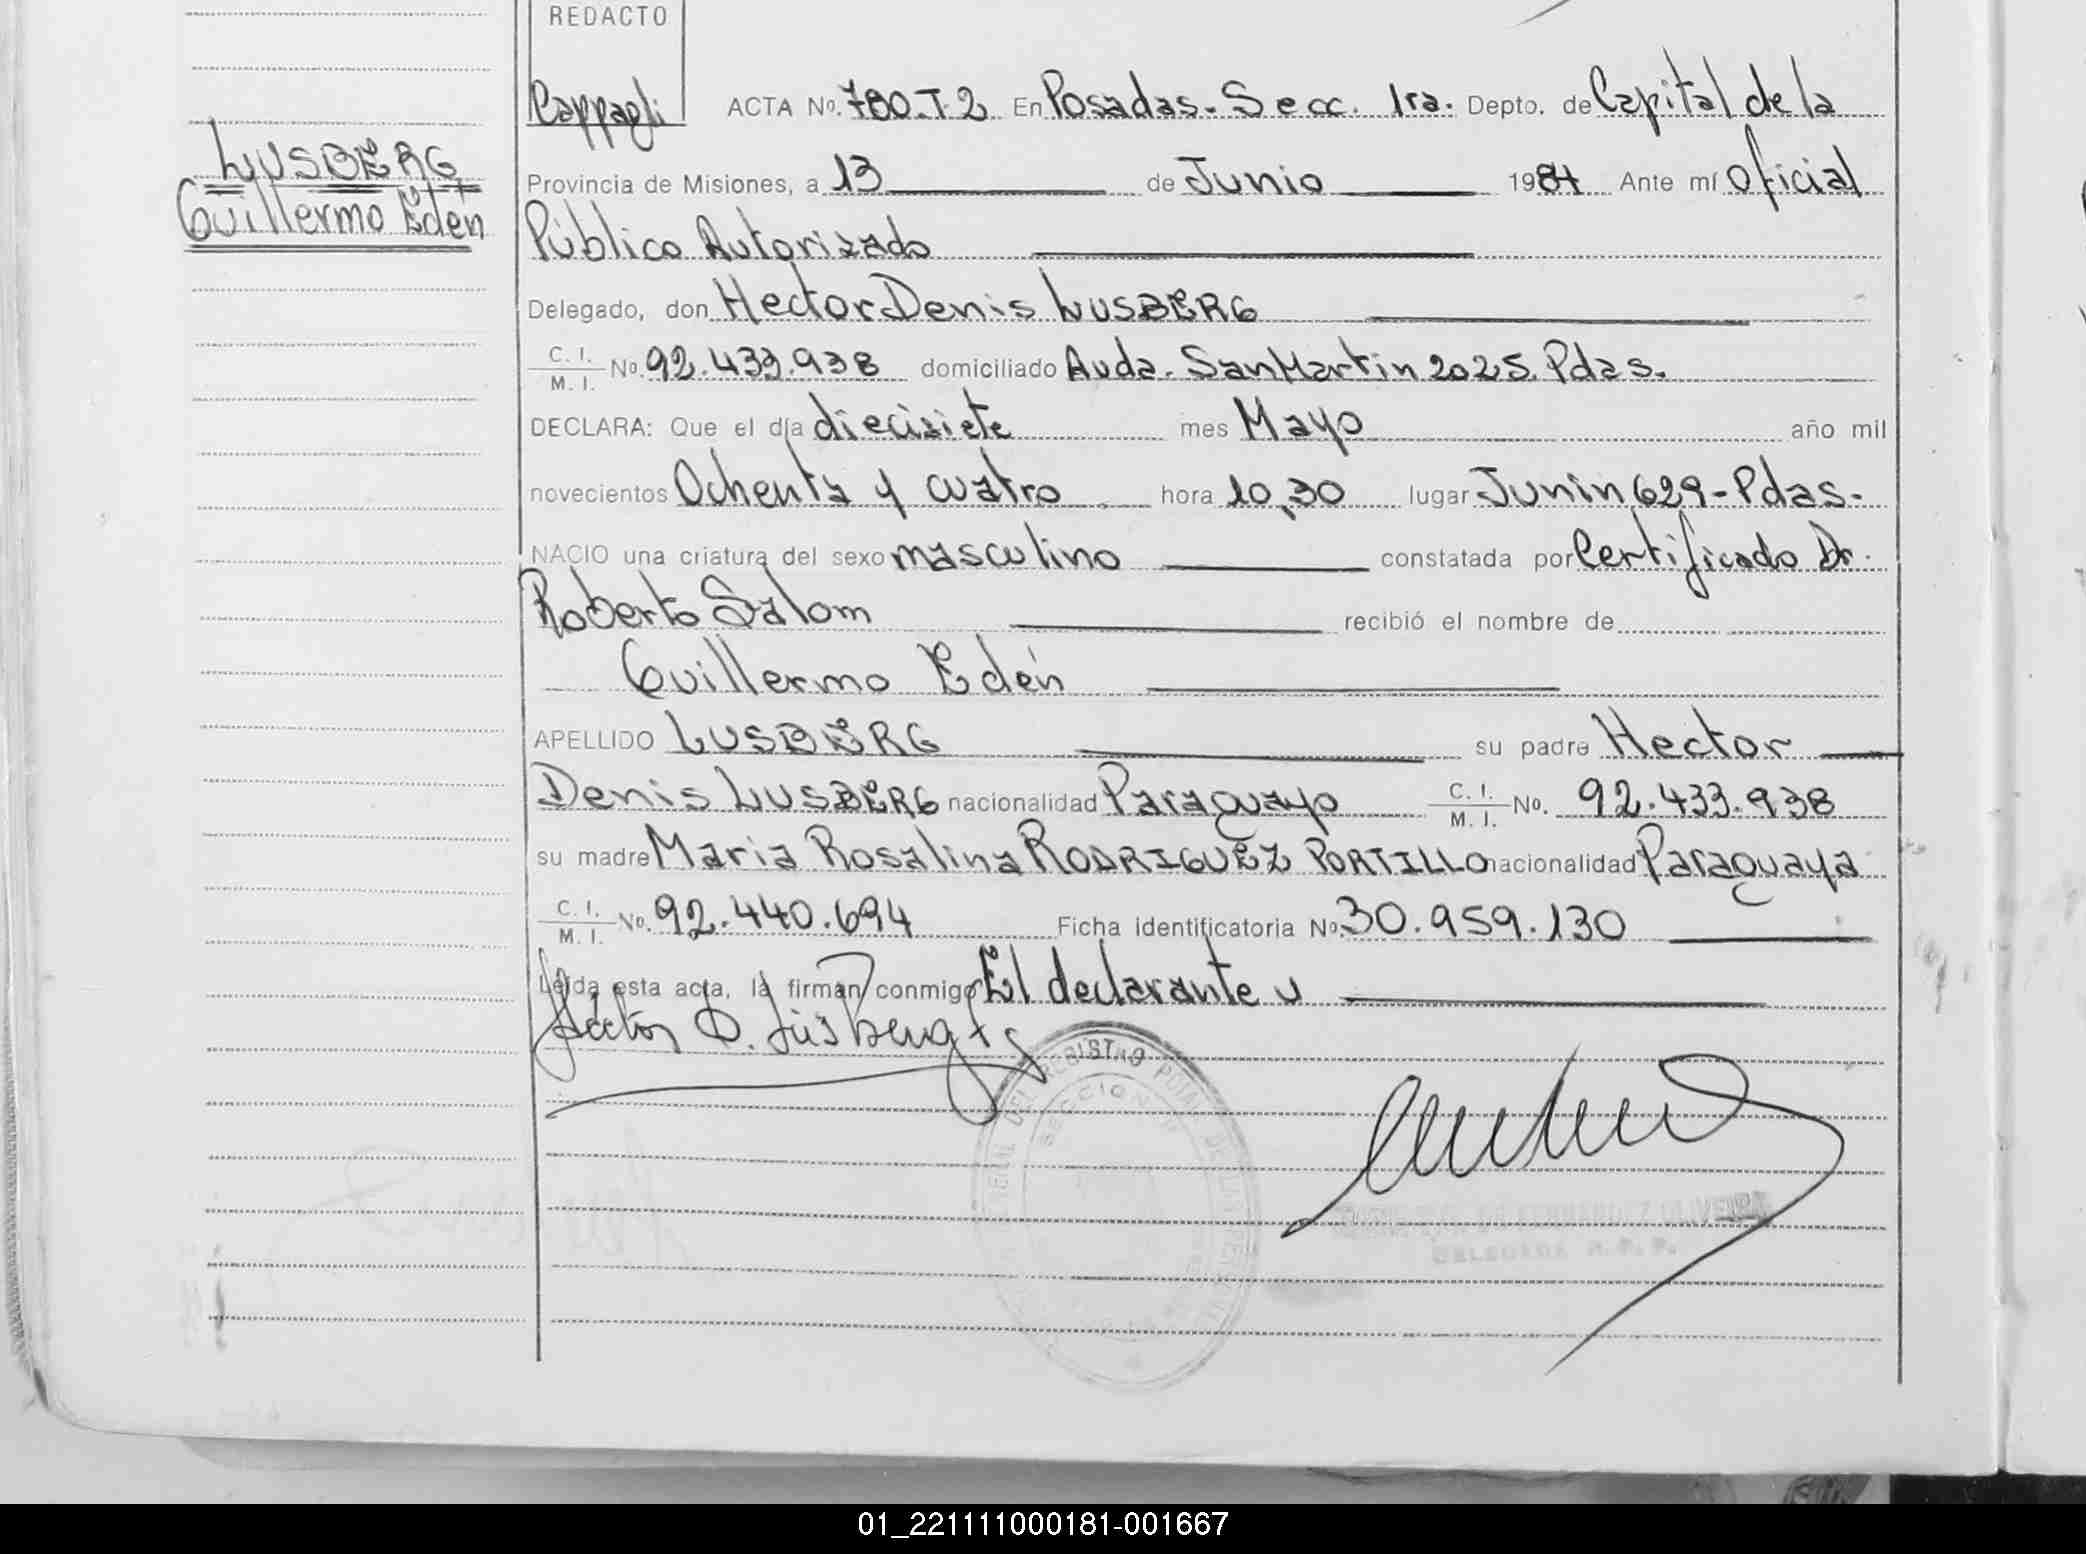 REDACTO
Cappagli
ACTA Nº. 780.T.2 En Posadas- Secc. 1ra. Depto. de Capital de la
LUSBERG
Guillermo Edén
Provincia de Misiones, a 13 de Junio 1984 Ante mí Oficial
Público Autorizado
Delegado, don Hector Denis LUSBERG
C. I. / M. I. Nº. 92.433.938 domiciliado Avda. San Martin 2025. Pdas.
DECLARA: Que el día diecisiete mes Mayo año mil
novecientos Ochenta y cuatro hora 10,30 lugar Junin 629-Pdas-
NACIO una criatura del sexo masculino constatada por Certificado Dr.
Roberto Salom recibió el nombre de
Guillermo Edén
APELLIDO LUSBERG su padre Hector
Denis LUSBERG nacionalidad Paraguayo C. I. / M. I. Nº. 92.433.938
su madre Maria Rosalina RODRIGUEZ PORTILLO nacionalidad Paraguaya
C. I. / M. I. Nº. 92.440.694 Ficha identificatoria Nº. 30.959.130
Leída esta acta, la firman conmigo El declarante
Héctor D. Lusberg
REGISTRO
SECCION
FERNANDEZ OLIVEIRA
DELEGADA R. P. P.
01_221111000181-001667